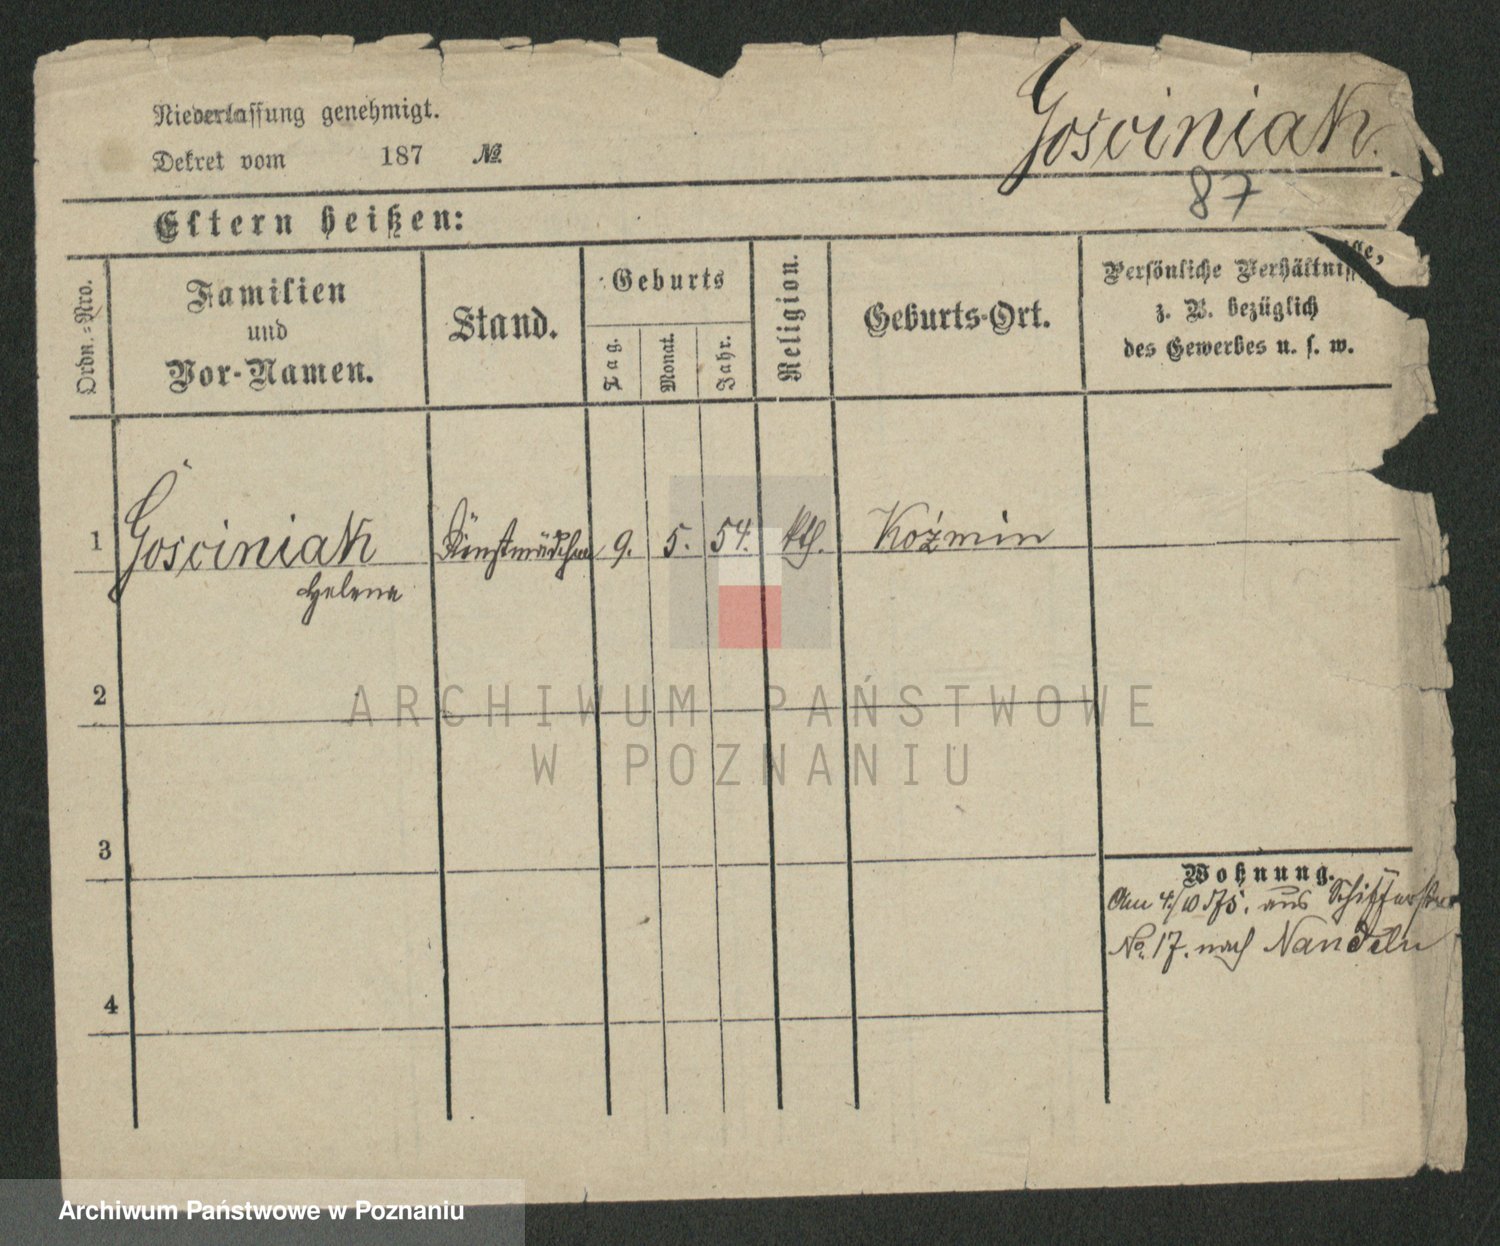 Niederlassung genehmigt.
Dekret vom 187 №
Gosciniak.
87
Eltern heißen:
Ordn.=Nro.
Familien
und
Vor-Namen.
Stand.
Geburts
Tag.
Monat.
Jahr.
Religion.
Geburts-Ort.
Persönliche Verhältnisse,
z. B. bezüglich
des Gewerbes u. s. w.
1 Gosciniak Dienstmädchen 9. 5. 54. kth. Koźmin
Helena
2
3
4
Wohnung.
Am 4/10 75. aus Schifferstr
No. 17. nach
ARCHIWUM PAŃSTWOWE
W POZNANIU
Archiwum Państwowe w Poznaniu